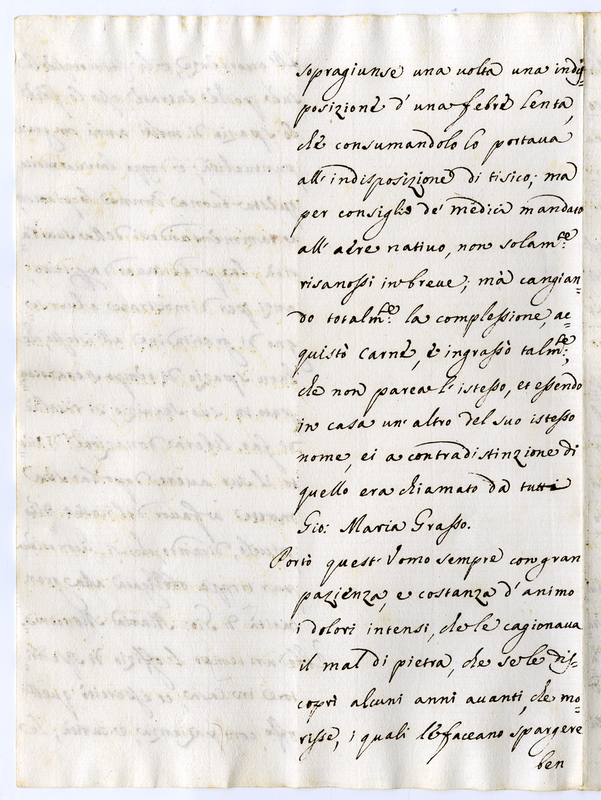 sopragiunse una volta una indi-
posizione d'una febre lenta,
che consumandolo lo portava
all'indisposizione di tisico; ma
per consiglio de' medici mandato
all'aere nativo, non solam.te
risanossi in breve; mà cangian-
do totalm.te la complessione, ac-
quistò carne, è ingrassò talm.te;
che non parea l'istesso, et essendo
in casa un'altro del suo istesso
nome, ei a contradistinzione di
quello era chiamato da tutti
Gio: Maria Grasso.
Portò quest'Vomo sempre con gran
pazienza, e costanza d'animo
i dolori intensi, che le cagionava
il mal di pietra, che se le dis-
coprì alcuni anni avanti, che mo-
risse, i quali le faceano spargere
ben